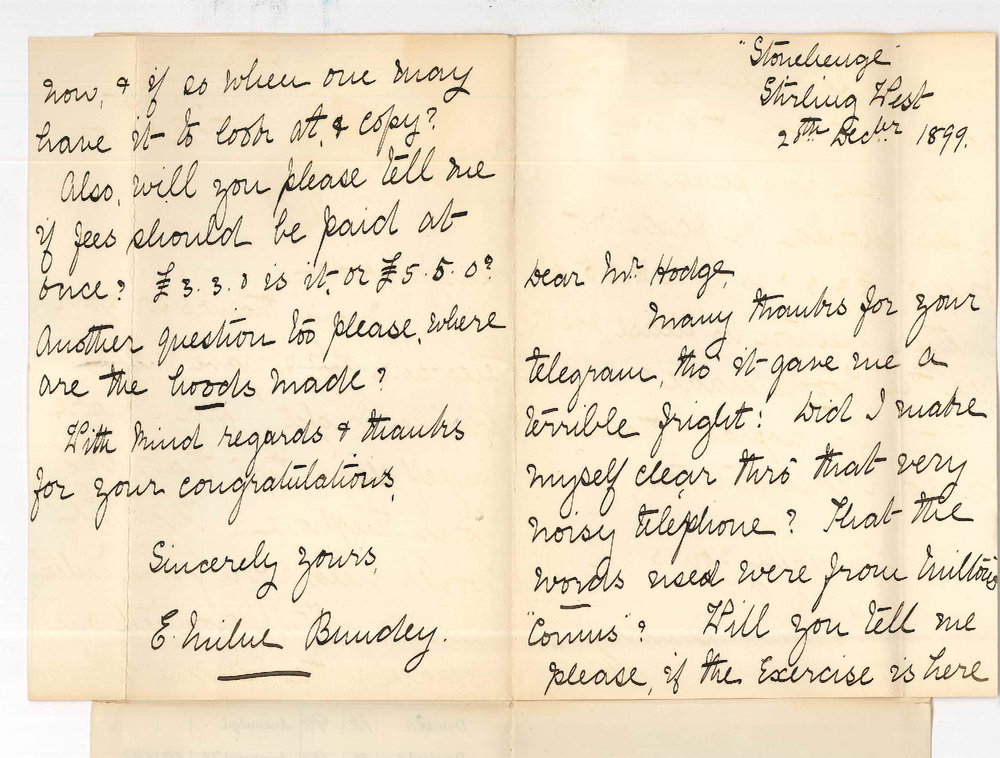 "Stonehenge"
Stirling West
20th Decbr 1899.
Dear Mr Hodge,
Many thanks for your
telegram, tho' it gave me a
terrible fright! Did I make
myself clear thro' that very
noisy telephone? That the
words used were from Milton's
"Comus"? Will you tell me
please, if the Exercise is here
now, & if so when one may
have it to look at, & copy?
Also, will you please tell me
if fees should be paid at
once? £3.3.0 is it, or £5.5.0?
Another question too please, where
are the hoods made?
With kind regards & thanks
for your congratulations,
Sincerely yours,
E. Milne Bundey.